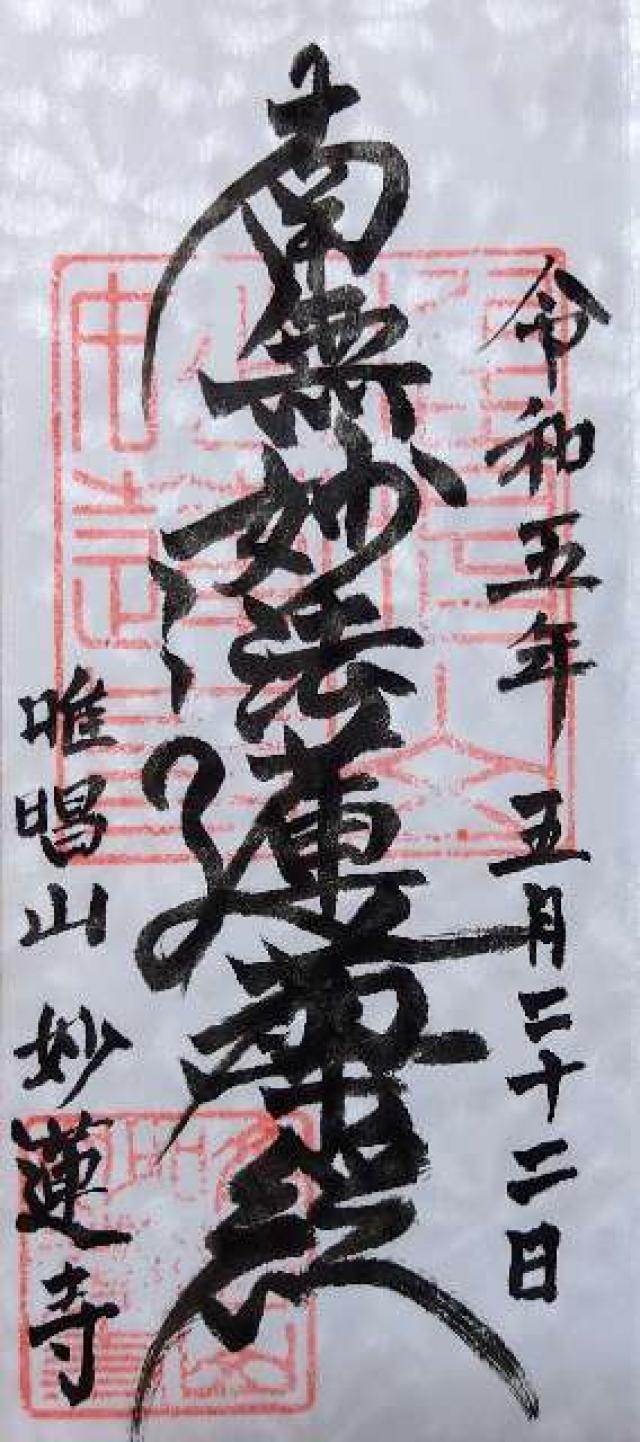 令和五年 五月二十二日
南無妙法蓮華経
唯昌山 妙蓮寺